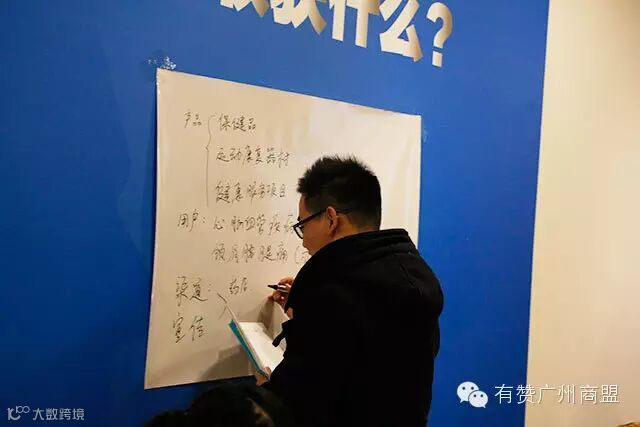 什么?
产品 保健品
运动康复器材
健康服务项目
用户: 心脑血管疾病
颈肩腰腿痛(
渠道: 药店
宣传
有赞广州商盟
大数跨境